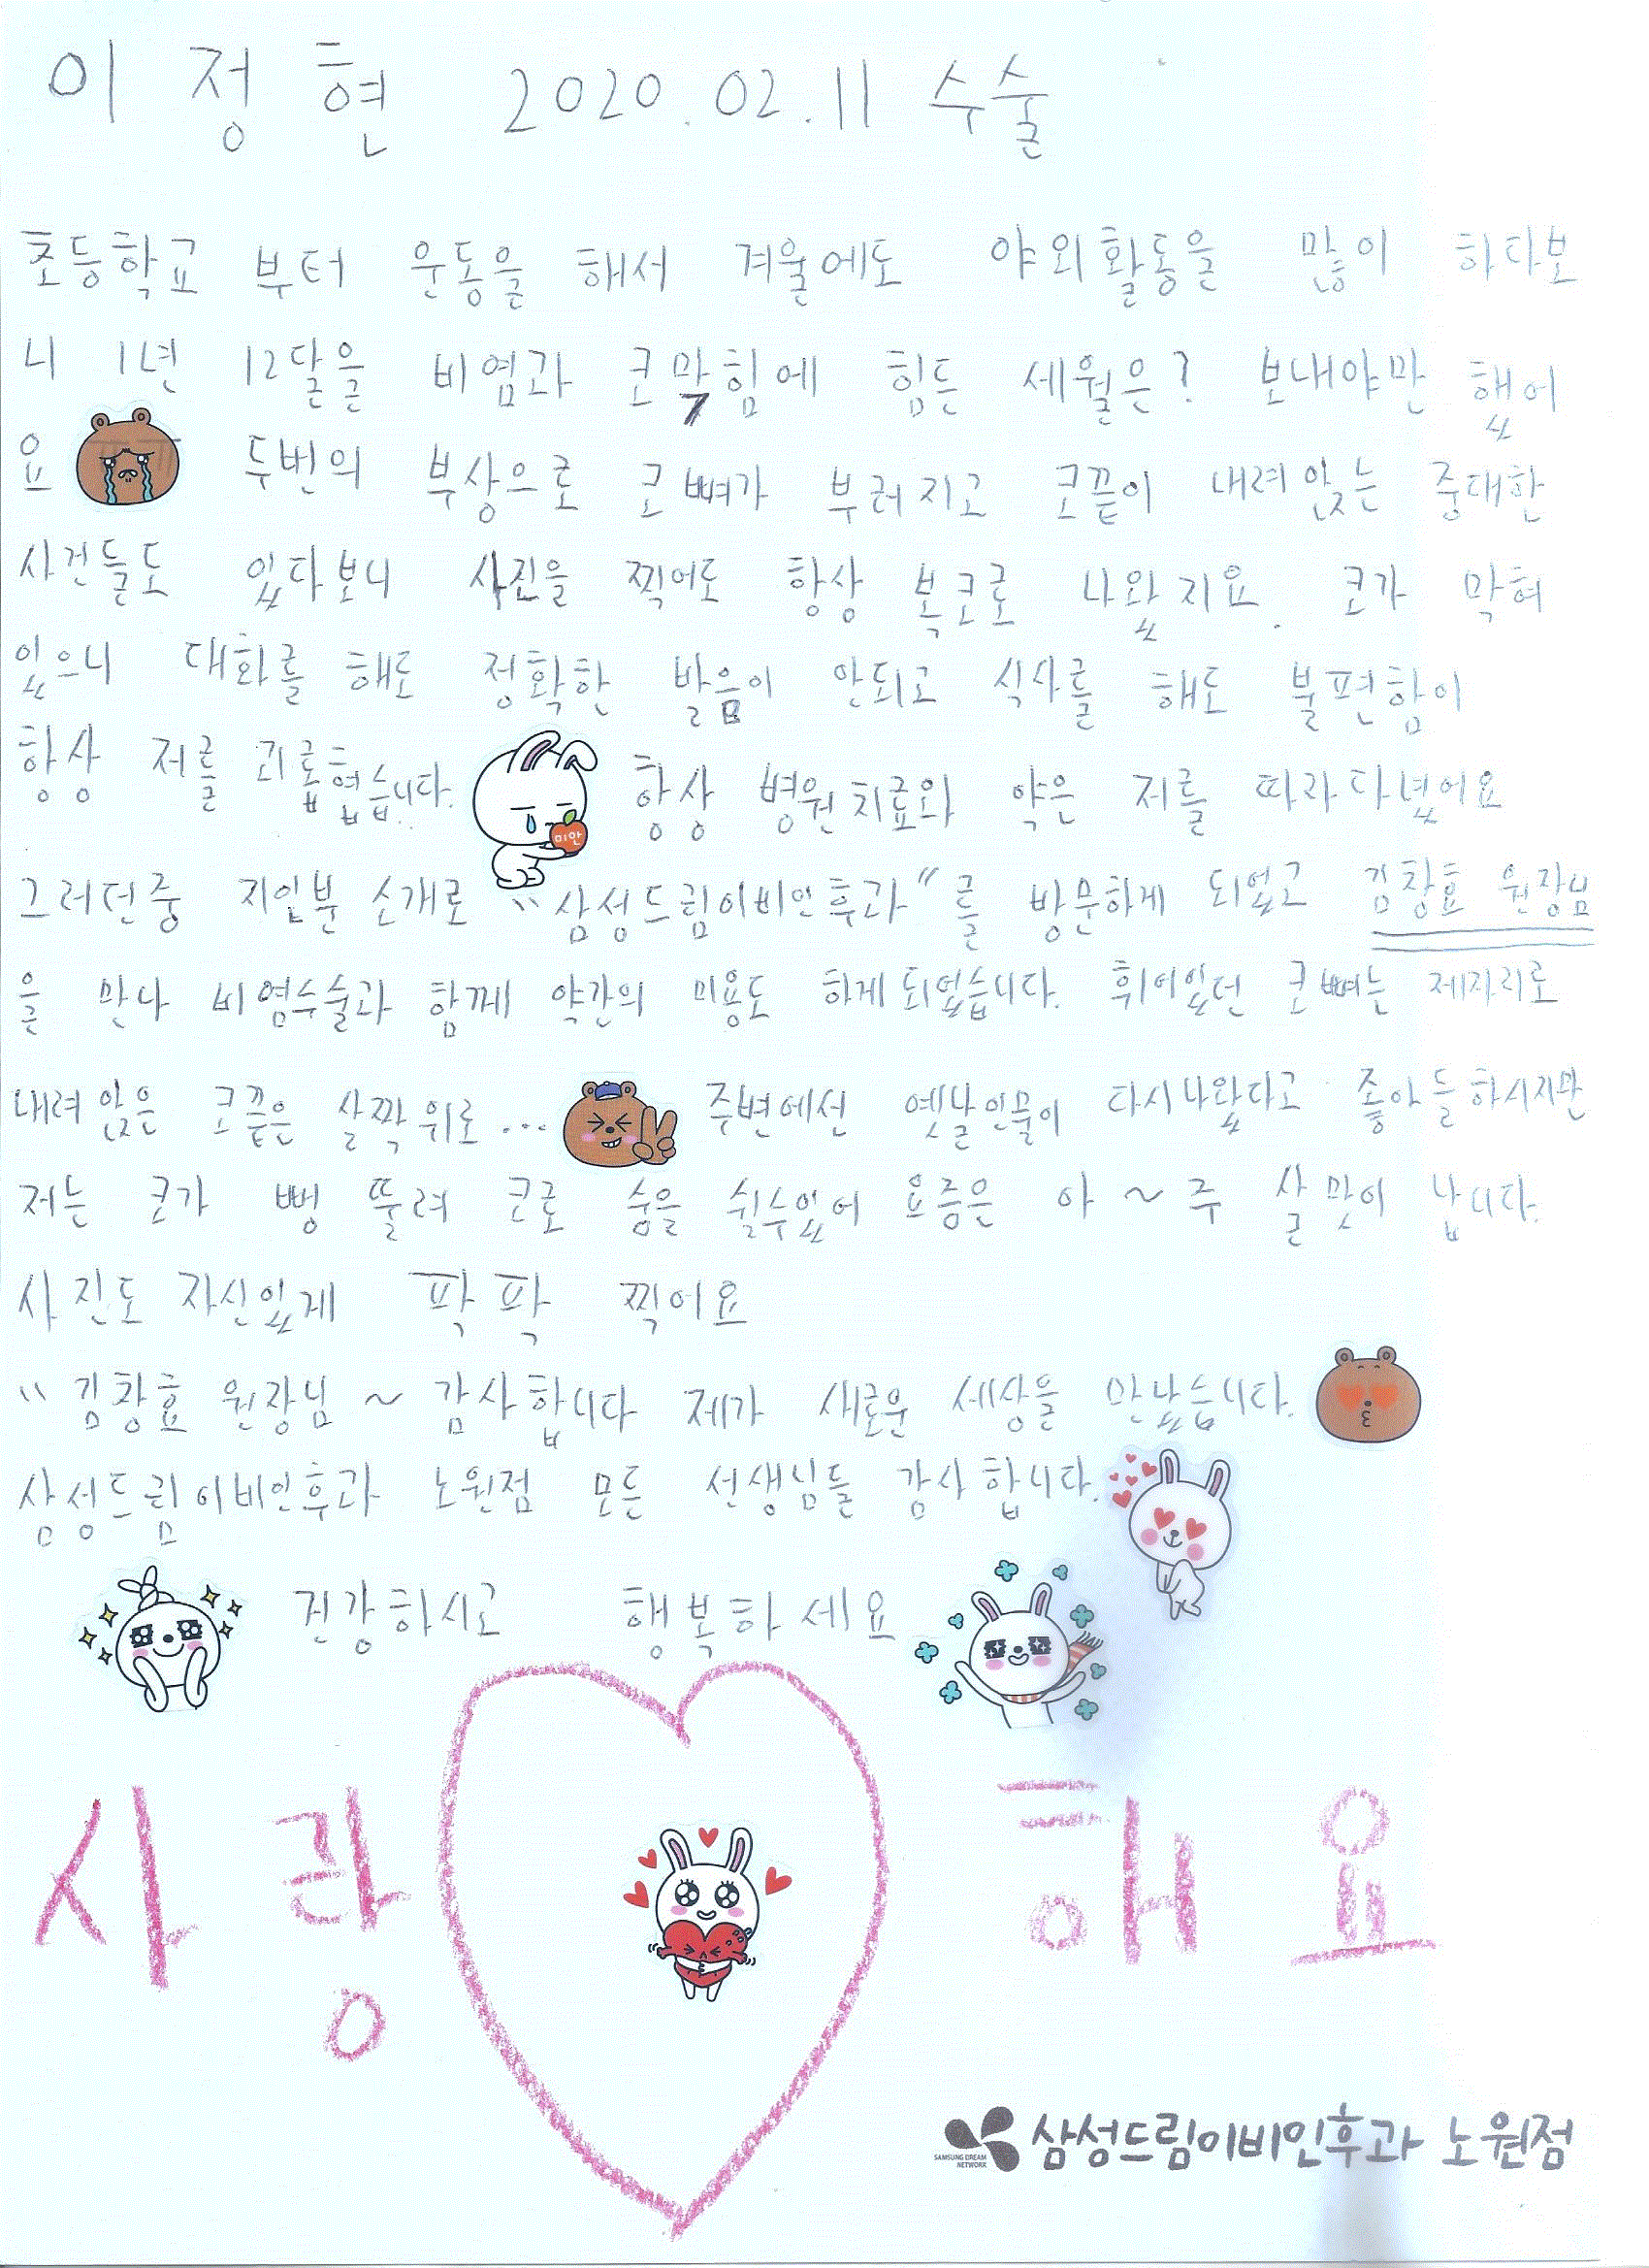 이정현 2020.02.11 수술
초등학교 부터 운동을 해서 겨울에도 야외활동을 많이 하다보
니 1년 12달을 비염과 코막힘에 힘든 세월은? 보내야만 했어
요 두번의 부상으로 코뼈가 부러지고 코끝이 내려앉는 중대한
사건들도 있다보니 사진을 찍어도 항상 복코로 나왔지요. 코가 막혀
있으니 대화를 해도 정확한 발음이 안되고 식사를 해도 불편함이
항상 저를 괴롭혔습니다. 항상 병원치료와 약은 저를 따라다녔어요
미안
그러던중 지인분 소개로 "삼성드림이비인후과"를 방문하게 되었고 김창효 원장님
을 만나 비염수술과 함께 약간의 미용도 하게되었습니다. 휘어있던 코뼈는 제자리로
내려앉은 코끝은 살짝위로... 주변에선 옛날인물이 다시나왔다고 좋아들하시지만
저는 코가 뻥 뚫려 코로 숨을 쉴수있어 요즘은 아~주 살맛이 납니다.
사진도 자신있게 팍팍 찍어요
"김창효 원장님~감사합니다 제가 새로운 세상을 만났습니다.
삼성드림이비인후과 노원점 모든 선생님들 감사합니다.
건강하시고 행복하세요
사랑 해요
SAMSUNG DREAM NETWORK 삼성드림이비인후과 노원점